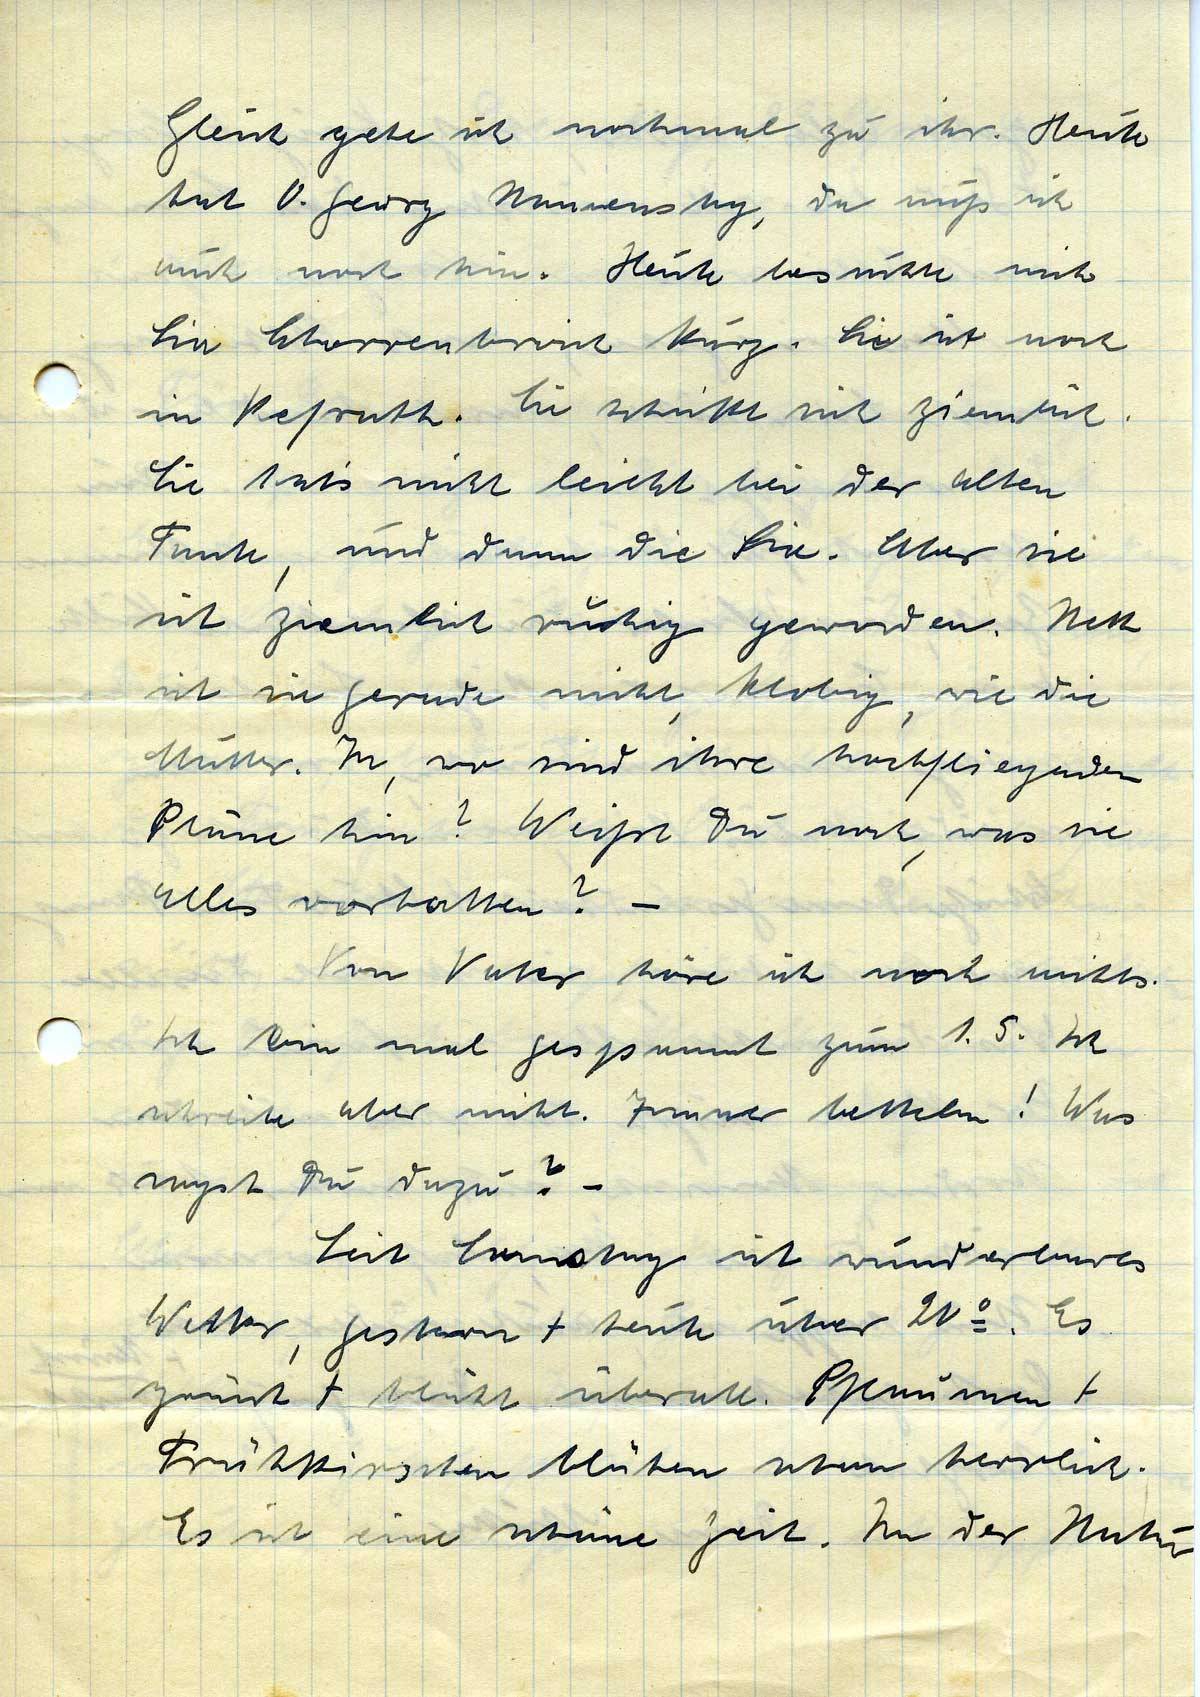 Gleich gehe ich nochmal zu ihr. Heute
hat O. Georg Namenstag, da muß ich
auch noch hin. Heute besuchte mich
kurz. Sie ist noch
in Refrath. Sie schickt sich ziemlich.
Sie hat's nicht leicht bei der alten
Tante, und dann die Aber sie
ist ziemlich ruhig geworden. Nett
ist sie gerade nicht, klobig, wie die
Mutter. Ja, wo sind ihre hochfliegenden
Pläne hin? Weißt Du noch, was sie
alles vorhatten? –
Von Vater höre ich noch nichts.
Ich bin mal gespannt zum 1. 5. Ich
schreibe aber nicht. Immer betteln! Was
sagst Du dazu? –
Seit Samstag ist wunderbares
Wetter, gestern + heute über Es
grünt + blüht überall. Pflaumen +
Frühkirschen blühen schon herrlich.
Es ist eine schöne Zeit. In der Natur